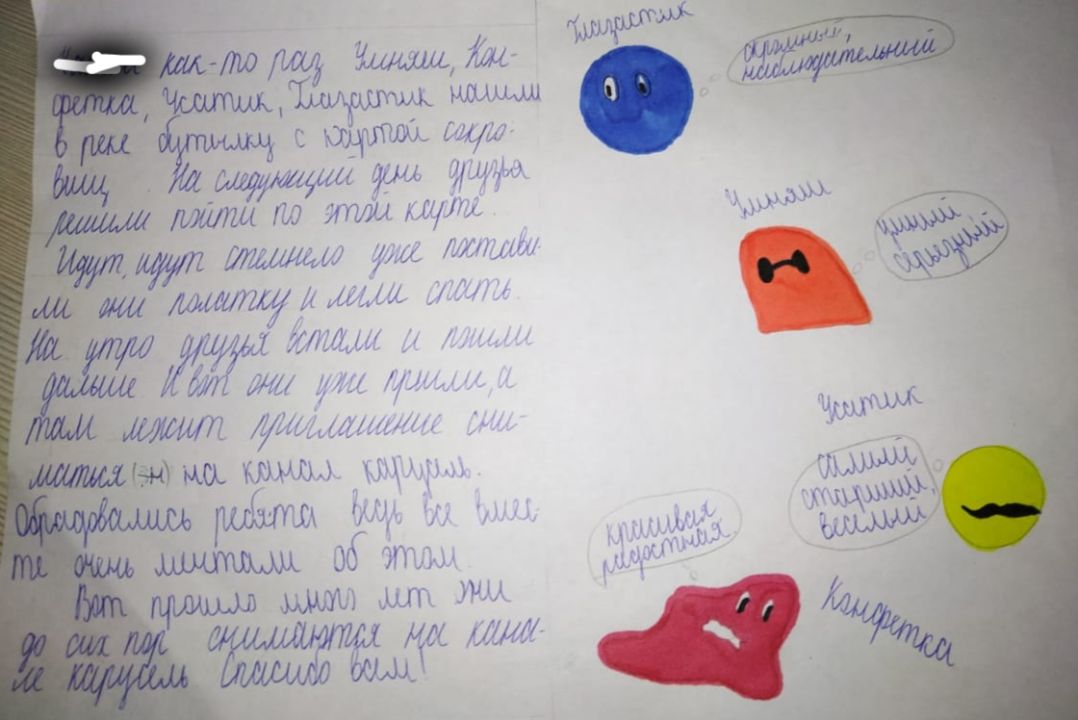 как-то раз Умняш, Кон-
фетка, Усатик, Глазастик нашли
в реке бутылку с картой сокро-
вищ. На следующий день друзья
решили пойти по этой карте.
Идут, идут стемнело уже постави-
ли они полатку и легли спать.
На утро друзья встали и пошли
дальше. И вот они уже пришли, а
там лежит приглашение сни-
маться на канал карусель.
Обрадовались ребята ведь все вмес-
те очень мечтали об этом.
Вот прошло много лет они
до сих пор снимаются на кана-
ле карусель Спасибо вам!
Глазастик
скромный,
наблюдательный
Умняш
умный
серьезный
Усатик
самый
старший,
веселый
красивая
радостная.
Конфетка